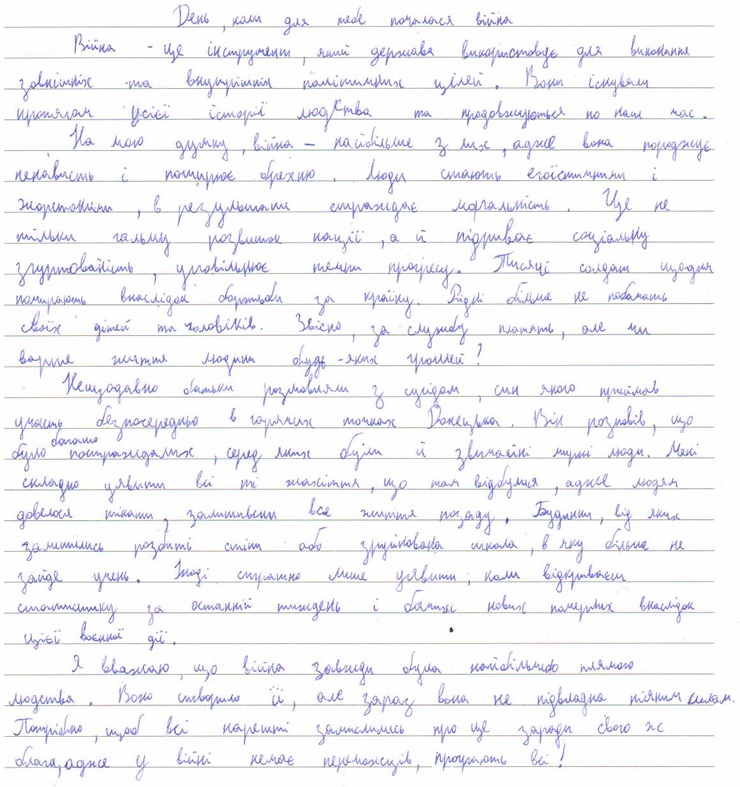 День, коли для тебе почалася війна
Війна - це інструмент, який держава використовує для виконання
зовнішніх та внутрішніх політичних цілей. Вони існували
протягом усієї історії людства та продовжуються по наш час.
На мою думку, війна – найбільше з лих, адже вона породжує
ненависть і поширює брехню. Люди стають егоїстичними і
жорстокими, в результаті страждає моральність. Це не
тільки гальму розвиток нації, а й підриває соціальну
згуртованість, уповільнює темпи прогресу. Тисячі солдат щодня
помирають внаслідок боротьби за країну. Рідні більше не побачать
своїх дітей та чоловіків. Звісно, за службу платять, але чи
варте життя людини будь-яких грошей?
Нещодавно батьки розмовляли з сусідом, син якого приймав
участь безпосередньо в горячих точках Донецька. Він розповів, що
було багато постраждалих, серед яких були й звичайні мирні люди. Мені
складно уявити всі ті жахіття, що там відбулися, адже людям
довелося тікати, залишивши все життя позаду. Будинки, від яких
залишились розбиті стіни або зруйнована школа, в яку більше не
зайде учень. Тоді страшно лише уявити, коли відкриваєш
статистику за останній тиждень і бачиш нових померлих внаслідок
цієї воєнної дії.
Я вважаю, що війна завжди була найбільшою плямою
людства. Воно створило її, але зараз вона не підвладна ніяким силам.
Потрібно, щоб всі нарешті замислились про це заради свого ж
блага, адже у війні немає переможців, програють всі!